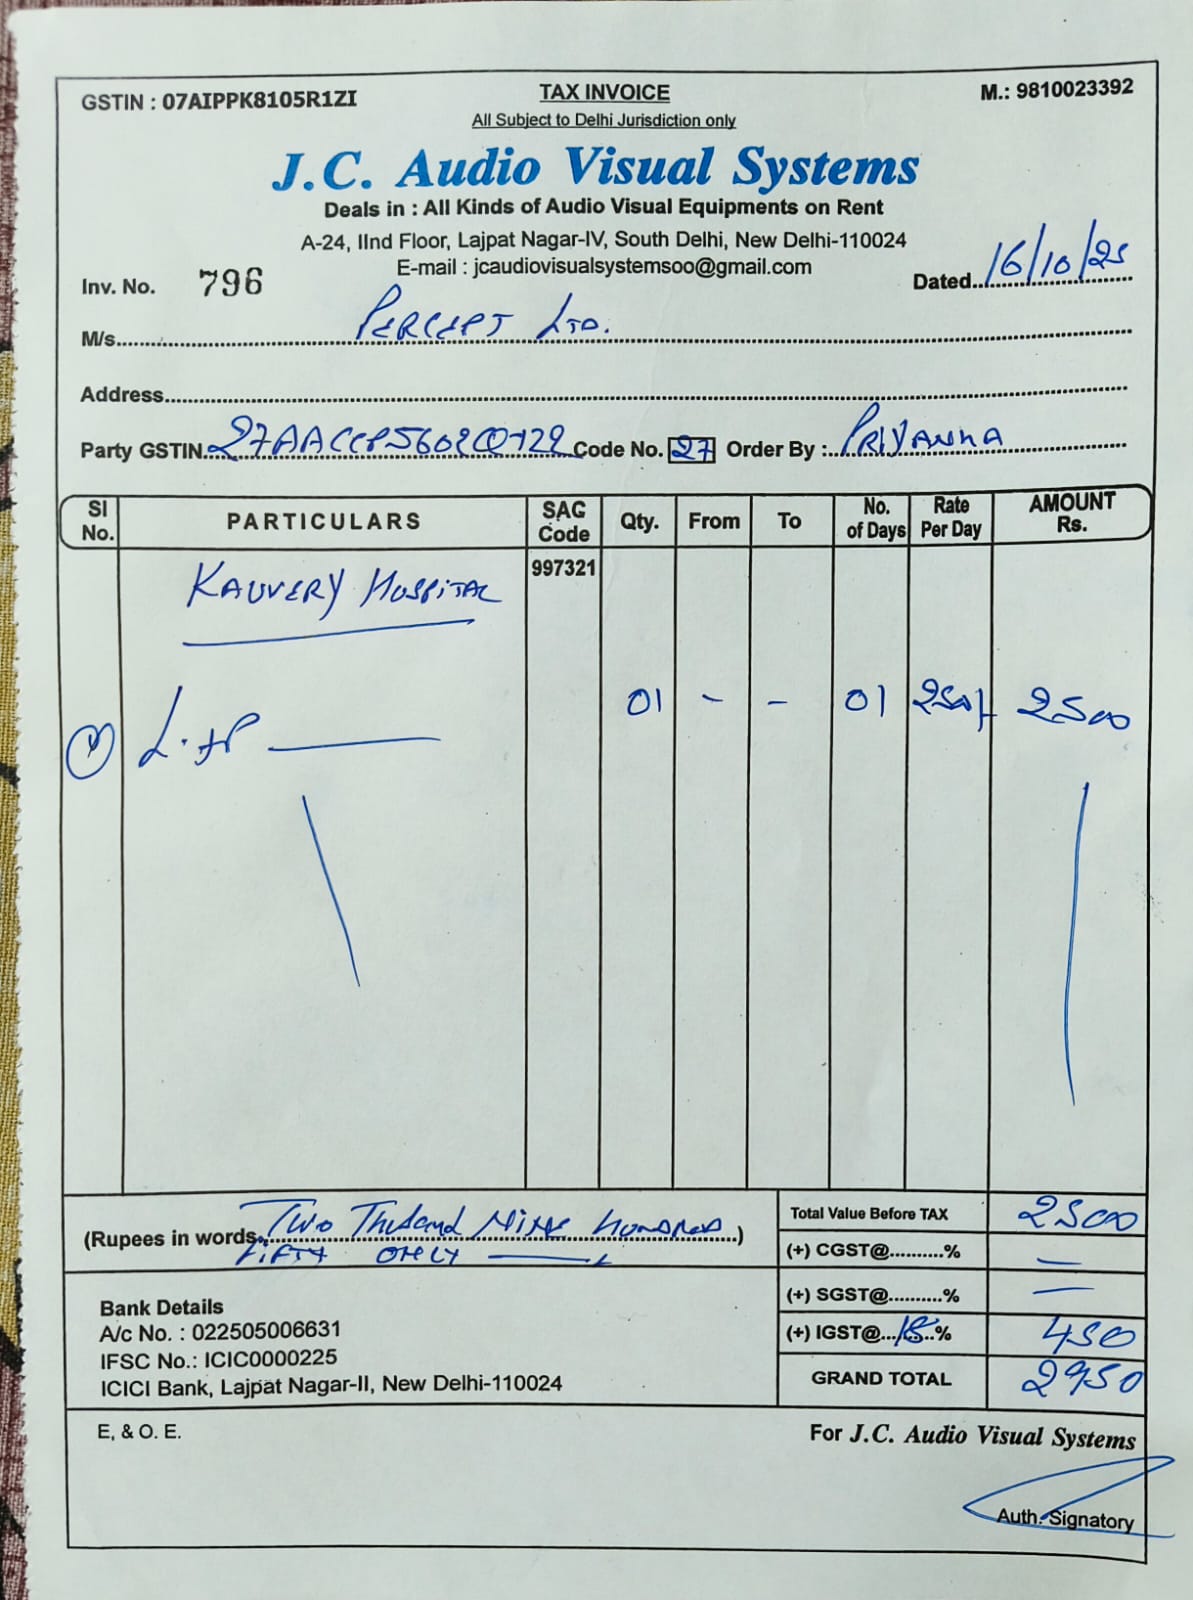 GSTIN : 07AIPPK8105R1ZI TAX INVOICE M.: 9810023392
All Subject to Delhi Jurisdiction only
J.C. Audio Visual Systems
Deals in : All Kinds of Audio Visual Equipments on Rent
A-24, IInd Floor, Lajpat Nagar-IV, South Delhi, New Delhi-110024
E-mail : jcaudiovisualsystemsoo@gmail.com
Inv. No. 796 Dated..16/10/25
M/s. PERCEPT LTD.
Address
Party GSTIN Code No. 27 Order By : PRIYANKA
SI No. PARTICULARS SAC Code Qty. From To No. of Days Rate Per Day AMOUNT Rs.
KAUVERY HOSPITAL 997321
L.TP 01 - - 01 2500/- 2500
(Rupees in words. TWO THOUSAND NINE HUNDRED
FIFTY ONLY )
Total Value Before TAX 2500
(+) CGST@..........% —
(+) SGST@..........% —
(+) IGST@...18..% 450
GRAND TOTAL 2950
Bank Details
A/c No. : 022505006631
IFSC No.: ICIC0000225
ICICI Bank, Lajpat Nagar-II, New Delhi-110024
E, & O. E. For J.C. Audio Visual Systems
Auth. Signatory